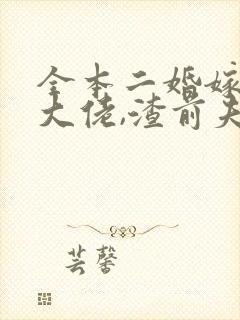 全本二婚嫁
大佬,渣前夫
芸馨